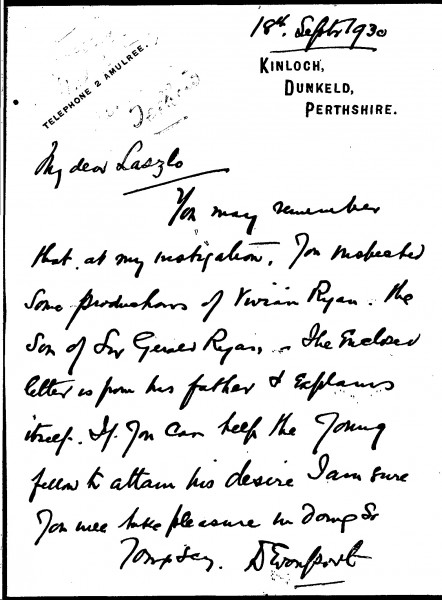 18th Septr 1930
TELEPHONE 2 AMULREE.
KINLOCH,
DUNKELD,
PERTHSHIRE.
My dear Laszlo
You may remember
that, at my instigation, You inspected
Some productions of Vivian Ryan. the
Son of Sir Gerald Ryan, - The Enclosed
letter is from his father & Explains
itself. If You can help the Young
fellow to attain his desire I am sure
You will take pleasure in doing So
Devonport